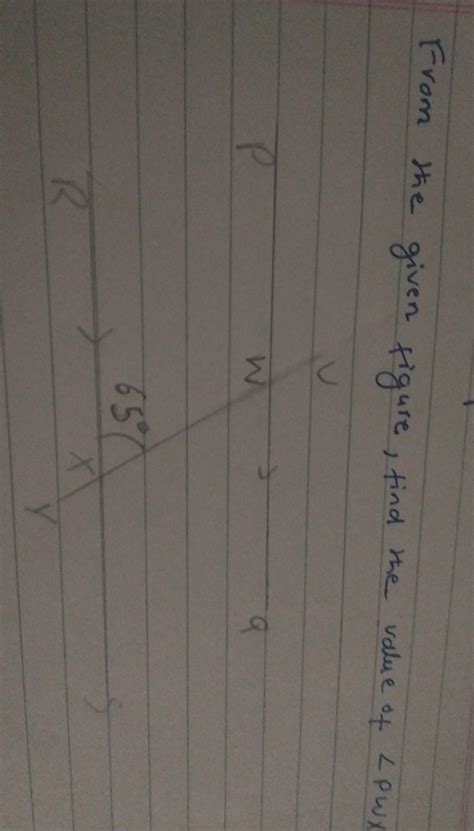 From the given figure, find the value of ∠PWX
U
P W Q
65°
R X S
Y